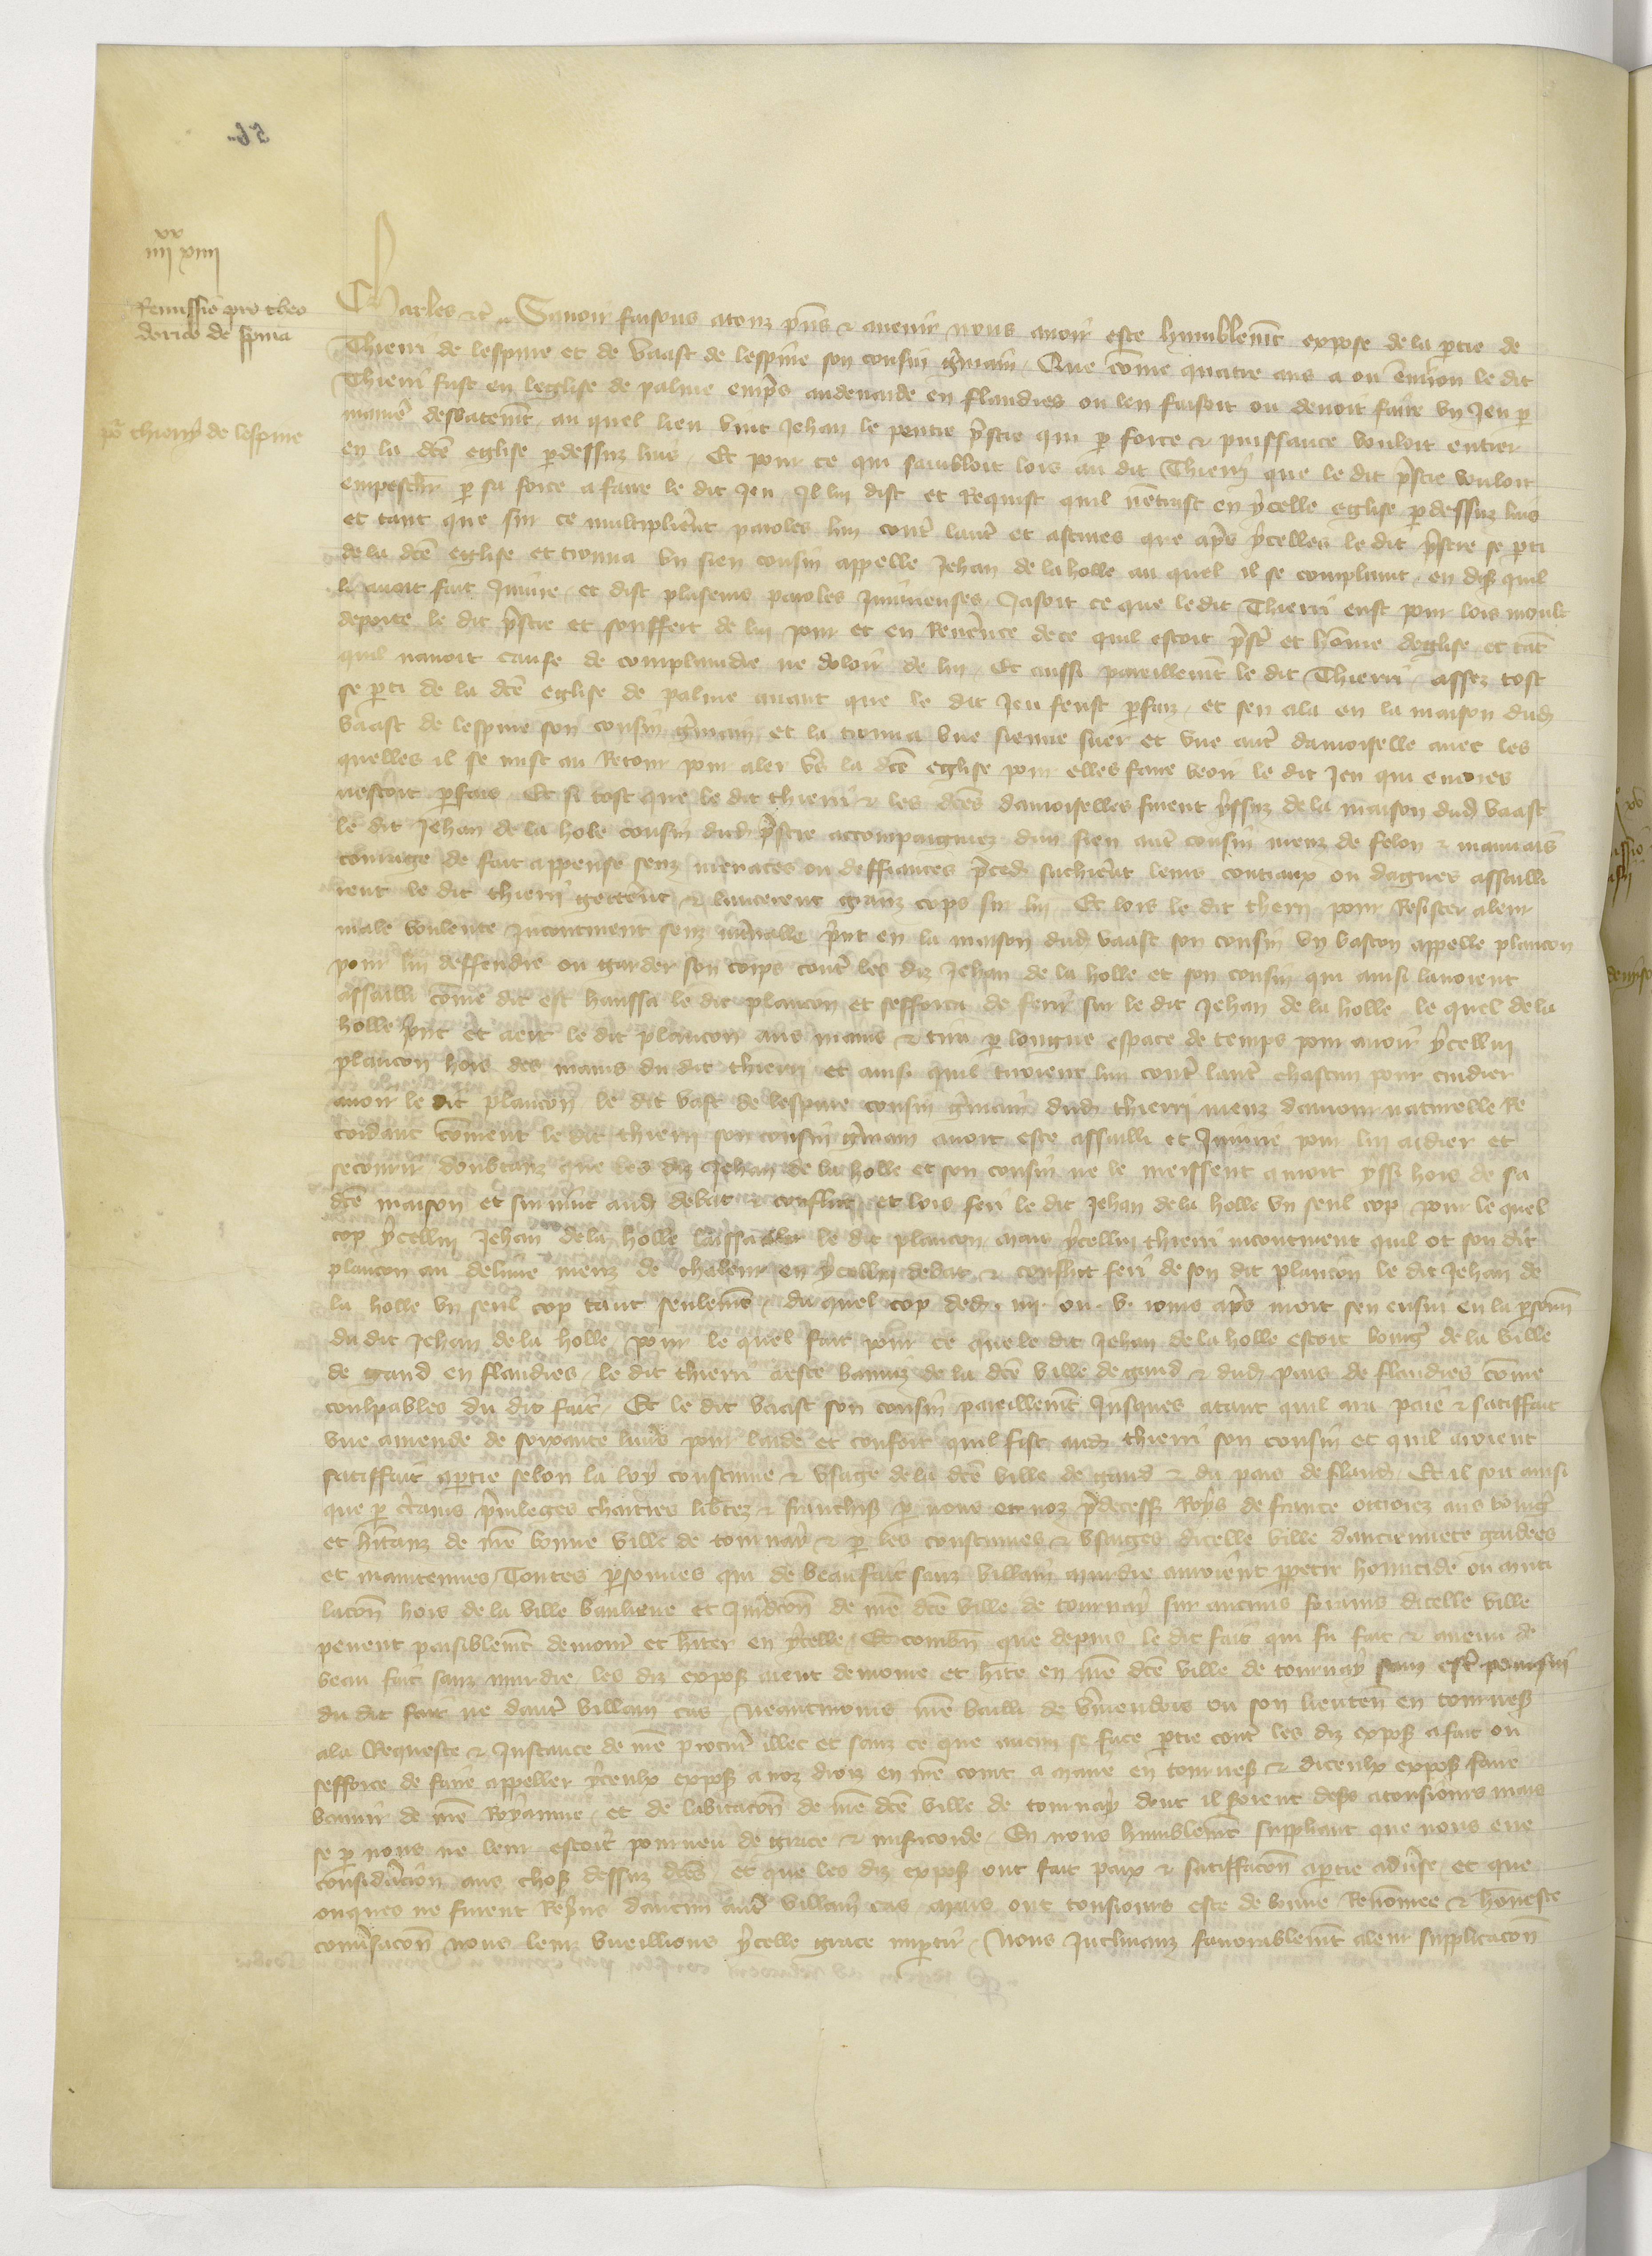 56
xx
iiii xiiii
Remissio pro theo
derico de spina
pour thierry de lespine
Charles etc. Savoir faisons a touz presens et avenir nous avoir este humblement expose de la partie de
Thierri de lespine et de Vaast de lespine son cousin germain Que comme quatre ans a ou environ le dit
Thierri fust en leglise de palme empres audenarde en flandres ou len faisoit ou devoit faire un Jeu par
maniere desbatement au quel lieu vint Jehan le pentre prestre qui par force et puissance vouloit entrer
en la dicte eglise pardessuz luis Et pour ce qui sambloit lors au dit Thierri que le dit prestre vouloit
empeschier par sa force a faire le dit Jeu Il lui dist et Requist quil nentrast en ycelle eglise pardessuz luis
et tant que sur ce multiplierent paroles lun contre lautre et actines que apres ycelles le dit prestre se parti
de la dicte eglise et trouva un sien cousin appelle Jehan de la holle au quel il se complaint en disant quil
li avoit fait Injure et dist pluseurs paroles Injurieuses Jasoit ce que ledit Thierri eust pour lors moult
deporte le dit prestre et souffert de lui pour et en Reverence de ce quil estoit prestre et homme deglise et tant
quil navoit cause de complaindre ne doloir de lui Et aussi pareillement le dit Thierri assez tost
se parti de la dicte eglise de palme avant que le dit Jeu feust parfaiz et sen ala en la maison dudit
Vaast de lespine son cousin germain et la trouva une sienne suer et une autre damoiselle avec les
quelles il se mist au Retour pour aler vers la dicte eglise pour elles faire veoir le dit Jeu qui encores
nestoit parfais Et si tost que le dit thierri et les dictes damoiselles furent yssuz de la maison dudit vaast
le dit Jehan de la hole cousin dudit prestre accompaigniez dun sien autre cousin meuz de felon et mauvais
courage de fait appense senz menaces ou deffiances precedens sachierent leurs coutiaux ou dagues assailli
rent le dit thierri getterent et lancerent granz cops sur lui Et lors le dit therri pour Resister a leur
male voulente incontinent senz intervalle print en la maison dudit vaast son cousin un baston appelle plancon
pour lui deffendre ou garder son corps contre les diz Jehan de la holle et son cousin qui ainsi lavoient
assailli comme dit est haussa le dit plancon et sefforca de ferir sur le dit Jehan de la holle le quel de la
holle print et aert le dit plancon aus mains et tira par longue espace de temps pour avoir ycellui
plancon hors des mains du dit thierri et ainsi quil tiroient lun contre lautre chascun pour cuidier
avoir le dit plancon le dit vast de lespine cousin germain dudit thierri meuz damour naturelle Re
cordant comment le dit thierri son cousin germain avoit este assailli et Injurie pour lui aidier et
secourir doubtanz que les diz Jehan de la holle et son cousin ne le meissent a mort yssi hors de sa
dicte maison et survint audit debat et conflict et lors feri le dit Jehan de la holle un seul cop pour le quel
cop ycellui Jehan de la holle laissa aler le dit plancon avant ycellui thierri incontinent quil ot son dit
plancon au delivre meuz de chaleur en ycellui debat et conflict feri de son dit plancon le dit Jehan de
la holle un seul cop tant seulement du quel cop dedens iiii ou v jours apres mort sen ensui en la personne
du dit Jehan de la holle pour le quel fait pour ce que le dit Jehan de la holle estoit bourgois de la ville
de gand en flandres le dit thierri a este banniz de la dicte ville de gand et dudit pais de flandres comme
coulpables du dit fait Et le dit vaast son cousin pareillement Jusques a tant quil ara paie et satiffait
une amende de soixante livres pour laide et confort quil fist audit thierri son cousin et quil avoient
satiffait a partie selon la loy coustume et usage de la dicte ville de gand et du pais de flandres Et il soit ainsi
que par certains privileges chartres libertez et franchises par nous et noz predecesseurs Roys de france ottroiez aus bourgois
et habitanz de nostre bonne ville de tournay et par les coustumes et usages dicelle ville danciennete gardees
et maintenues Toutes personnes qui de beau fait sanz villain murdre auroient perpetre homicide ou muti
lacion hors de la ville banlieue et Juridicion de nostre dicte ville de tournay sur aucuns forains dicelle ville
pevent paisiblement demourer et habiter en ycelle Et combien que depuis le dit fait qui fu fait et avenu de
beau fait sanz murdre les diz exposans aient demoure et habite en nostre dicte ville de tournay sanz estre poursui
du dit fait ne dautre villain cas neantmoins nostre bailli de vermendois ou son lieutenant en tournesis
a la Requeste et Instance de nostre procureur illec et sanz ce que aucun se face partie contre les diz exposans a fait ou
sefforce de faire appeller yceulx exposans a noz droiz en nostre court a maire en tournesis et diceulx exposans faire
bannir de nostre Royaume et de labitacion de nostre dicte ville de tournay dont il seroient desers a tousjours mais
se par nous ne leur estoit pourveu de grace et misericorde En nous humblement suppliant que nous eue
consideracion aus choses dessuz dictes et que les diz exposans ont fait paix et satiffacion a partie adverse et que
onques ne furent Repris daucun autre villain cas mais ont tousjours este de bonne Renommee et honneste
conversacion nous leur vueillions ycelle grace impartir Nous Inclinanz favorablement a leur supplicacion